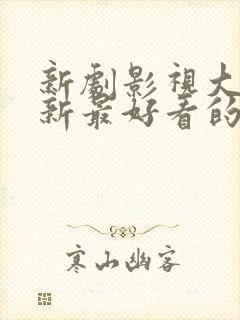 新劇影視大
新最好看的
寒山幽客